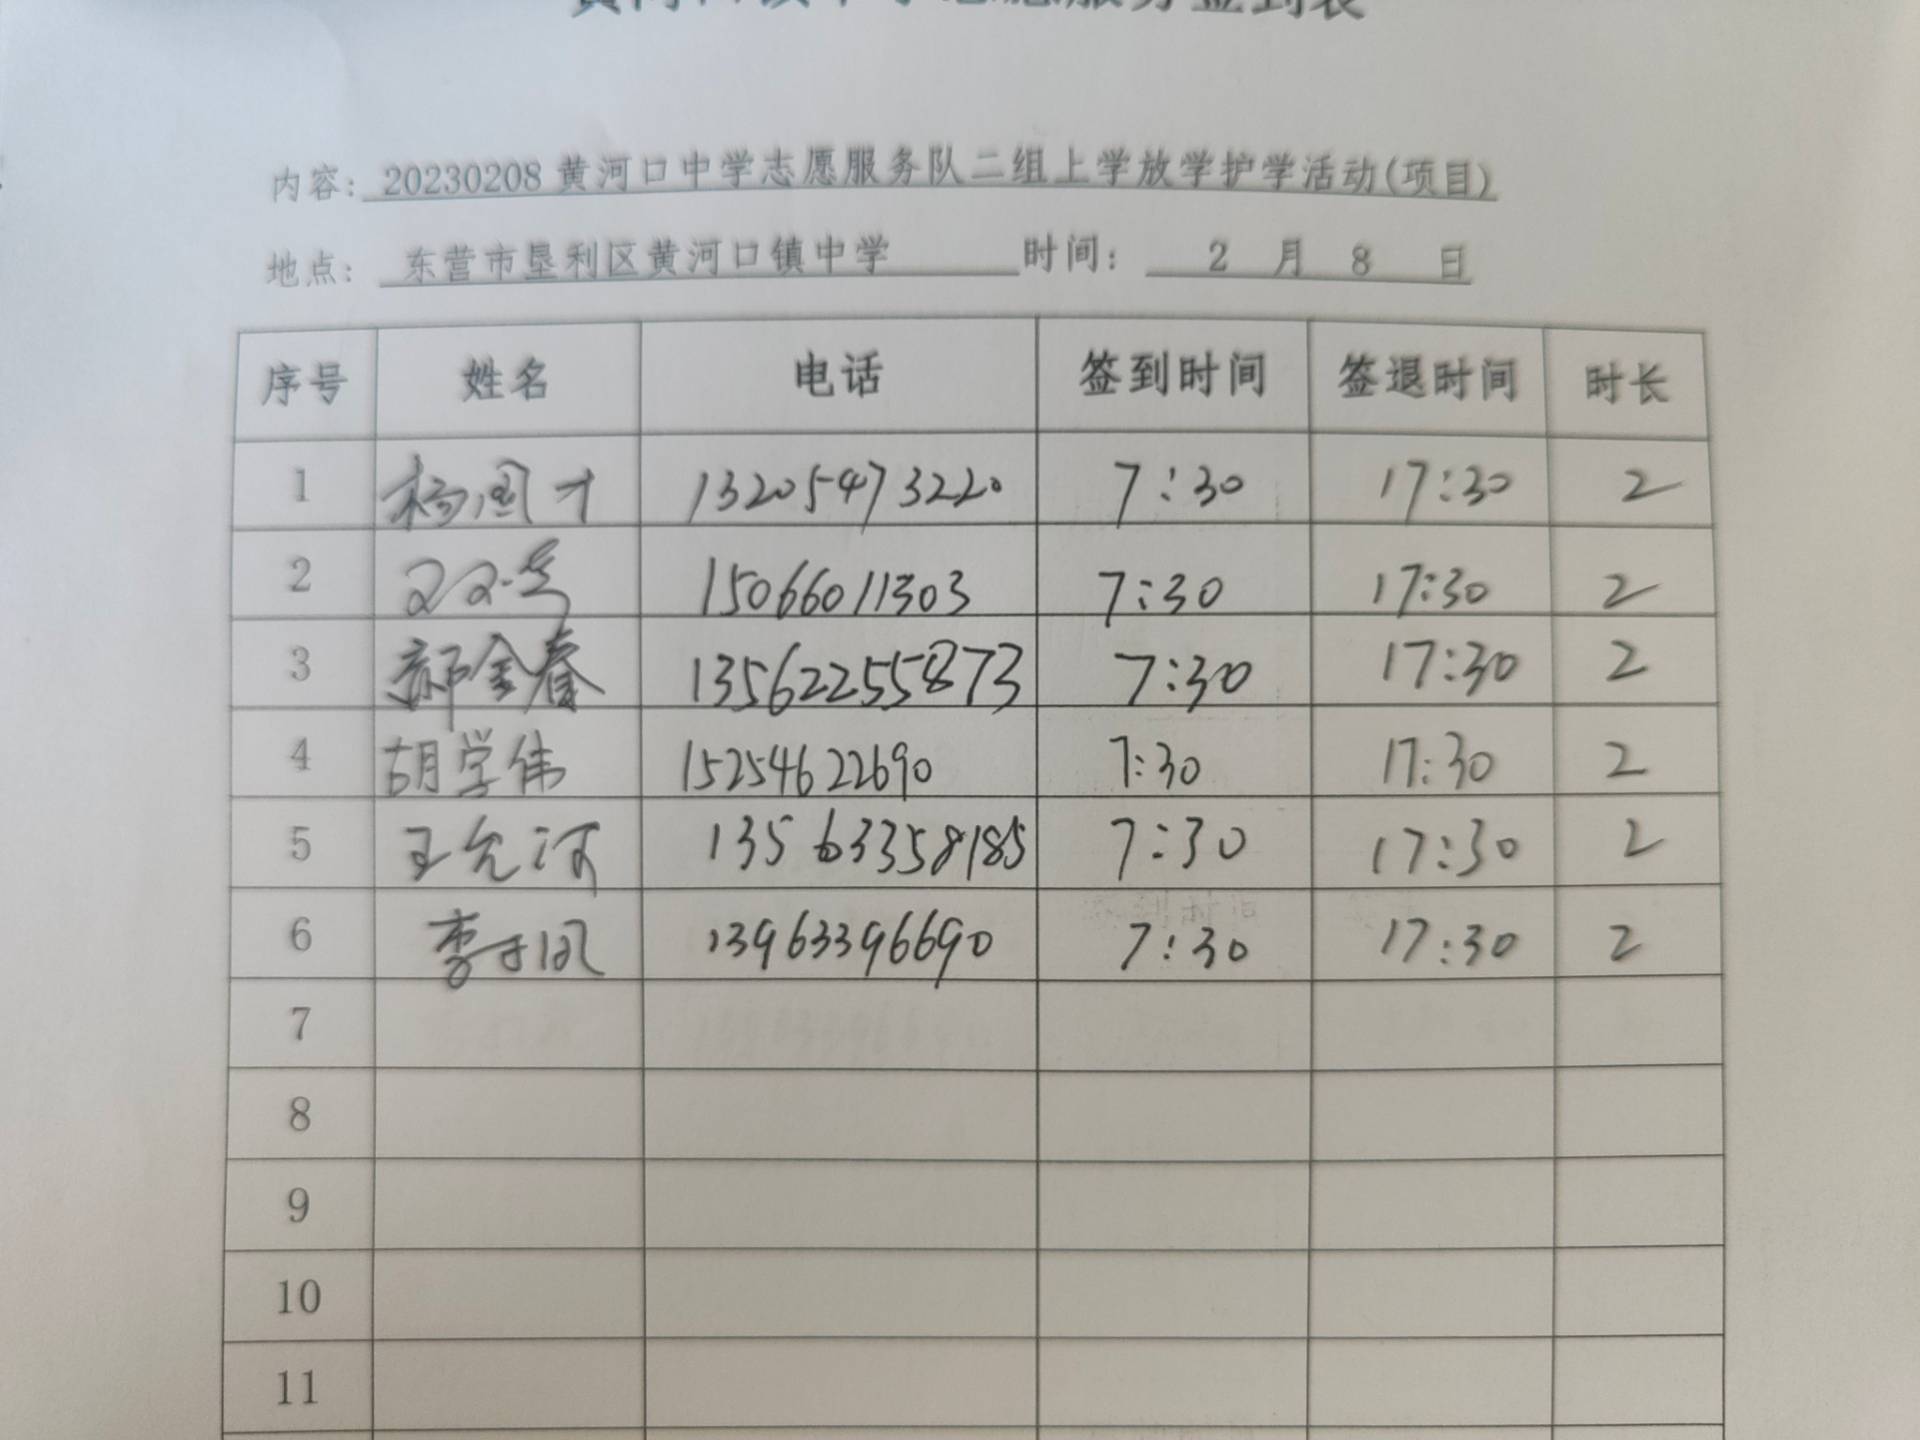 黄河口镇中学志愿服务签到表
内容：20230208 黄河口中学志愿服务队二组上学放学护学活动(项目)
地点：东营市垦利区黄河口镇中学 时间：2 月 8 日
序号 姓名 电话 签到时间 签退时间 时长
1 杨国才 13205473220 7:30 17:30 2
2 15066011303 7:30 17:30 2
3 郝金春 13562255873 7:30 17:30 2
4 胡学伟 15254622690 7:30 17:30 2
5 王允河 13563358185 7:30 17:30 2
6 13963396690 7:30 17:30 2
7
8
9
10
11